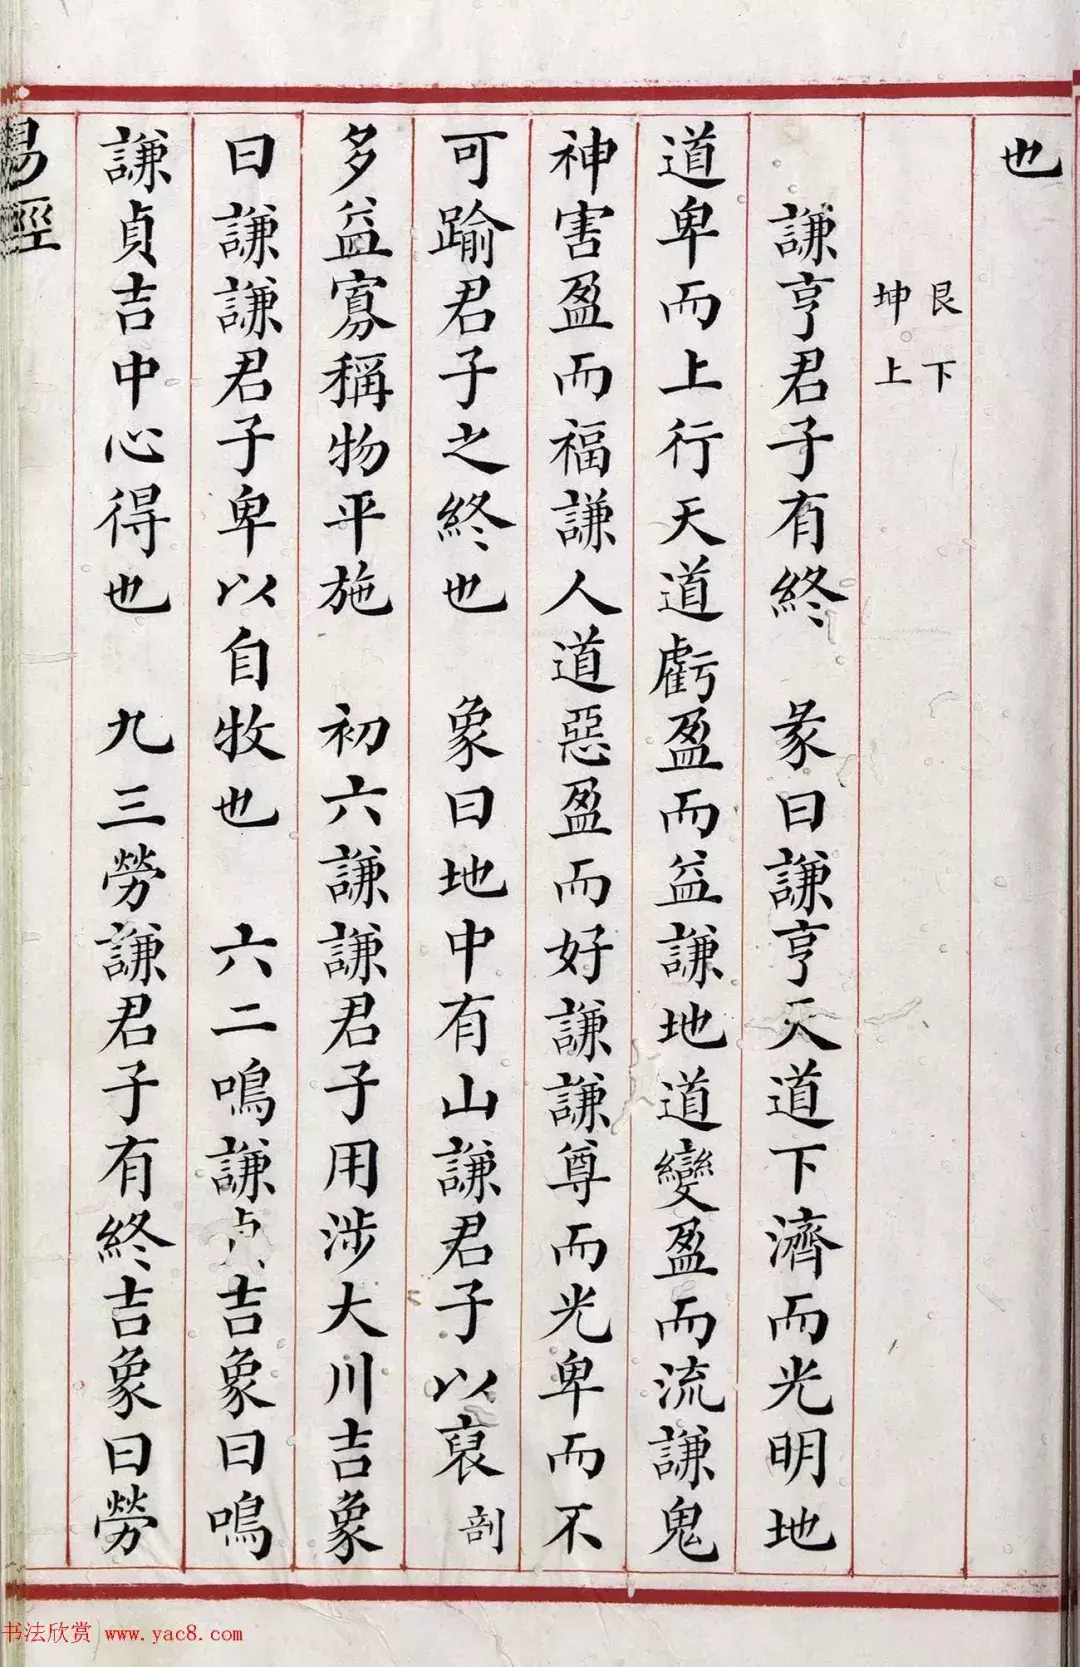 也
艮下
坤上
謙亨君子有終 彖曰謙亨天道下濟而光明地
道卑而上行天道虧盈而益謙地道變盈而流謙鬼
神害盈而福謙人道惡盈而好謙謙尊而光卑而不
可踰君子之終也 象曰地中有山謙君子以裒剖
多益寡稱物平施 初六謙謙君子用涉大川吉象
曰謙謙君子卑以自牧也 六二鳴謙貞吉象曰鳴
謙貞吉中心得也 九三勞謙君子有終吉象曰勞
易經
书法欣赏 www.yac8.com